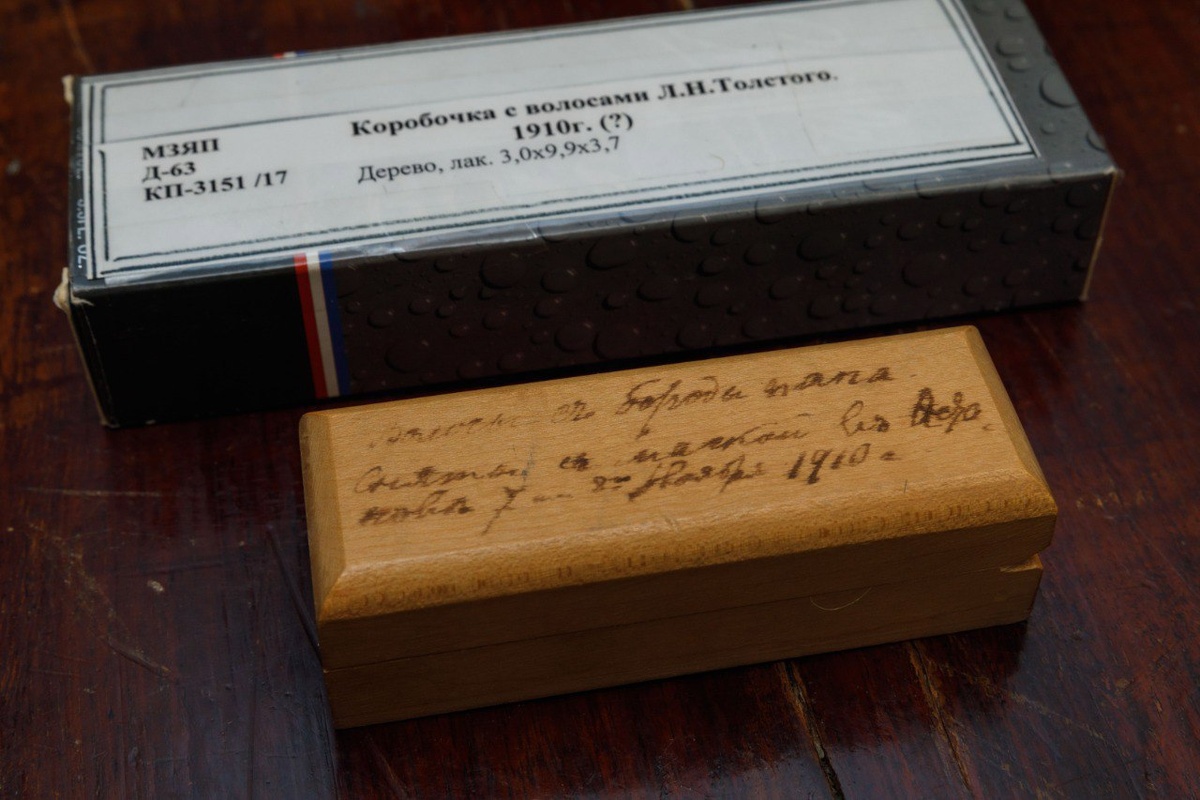 Коробочка с волосами Л.Н.Толстого.
1910г. (?)
МЗЯП
Д-63
КП-3151 /17
Дерево, лак. 3,0х9,9х3,7
Волосы съ бороды папа.
Сняты съ маской въ Аста
пове 7 Ноября 1910 г.